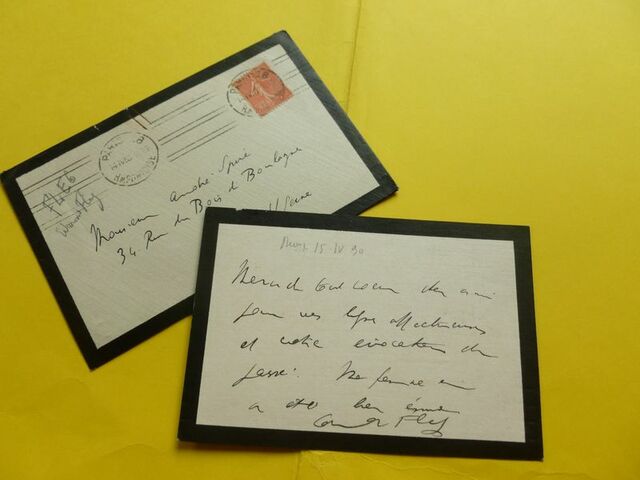 PARIS
FLEG
Edmond Fleg
Monsieur André Spire
34 Rue du Bois de Boulogne
s/Seine
15 IV 30
Merci de tout coeur cher ami
pour vos lignes affectueuses
et votre évocation du
passé. Ma femme
a été bien émue
Fleg